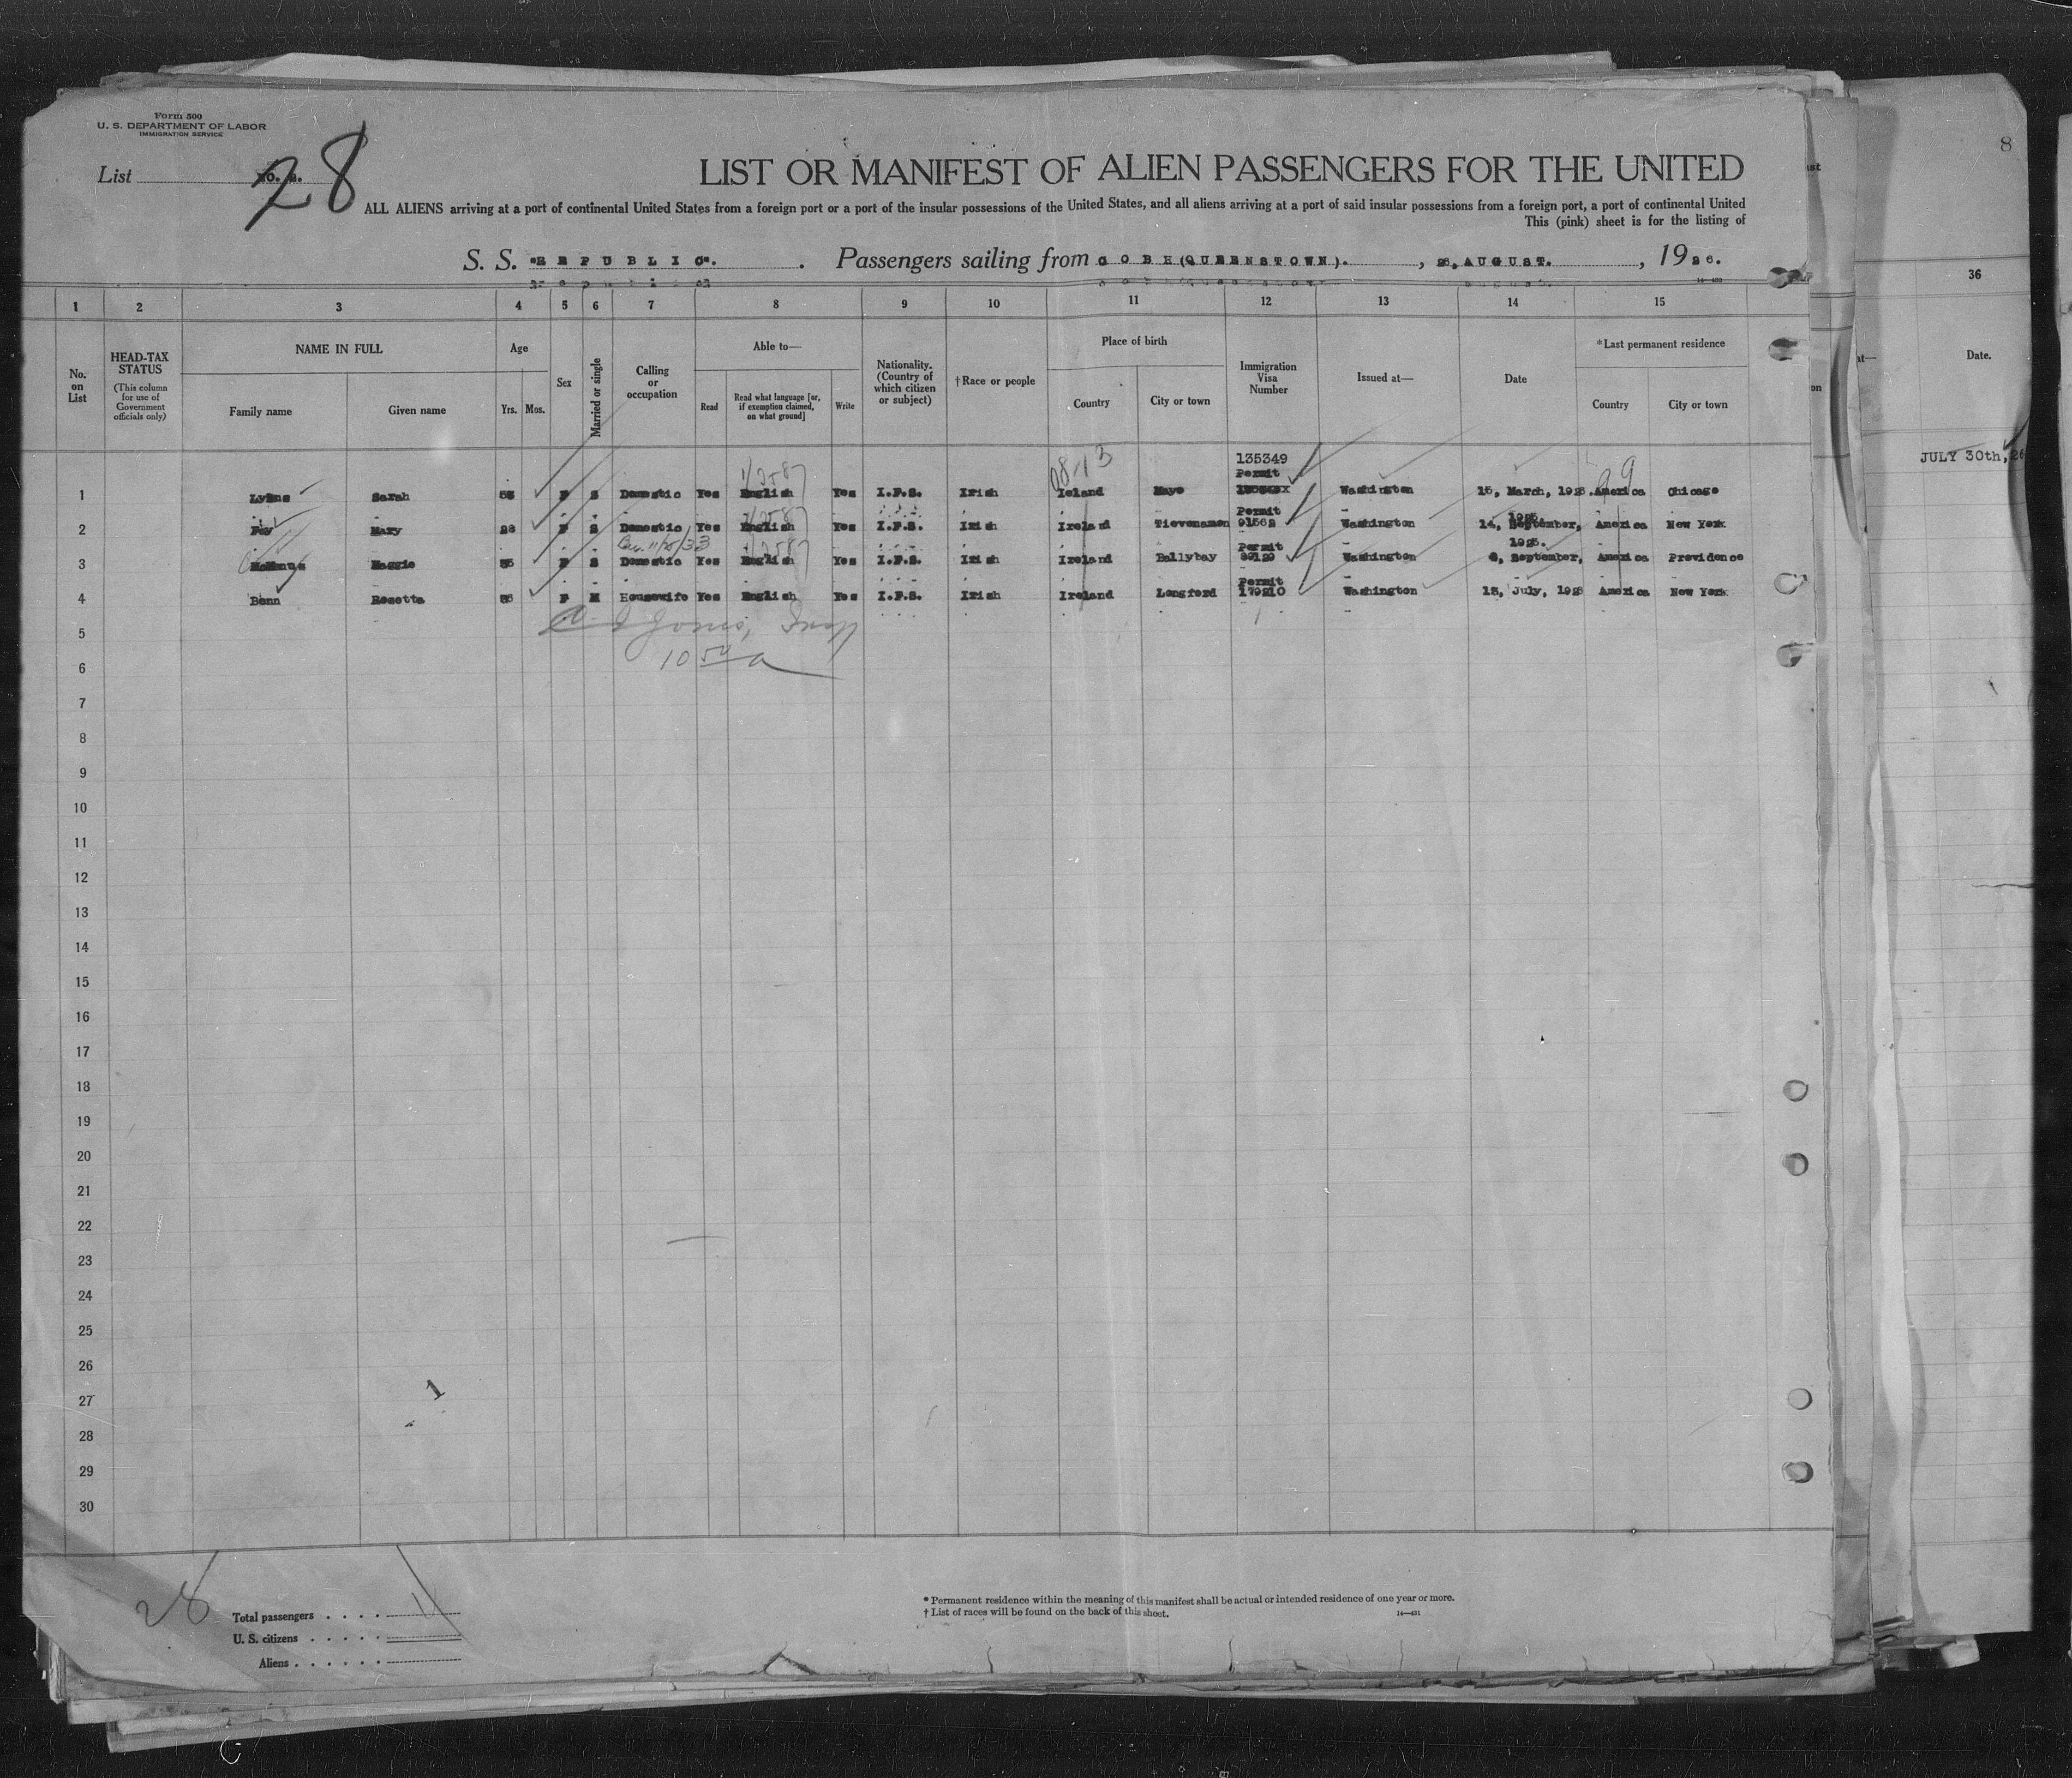 Form 500
U. S. DEPARTMENT OF LABOR
IMMIGRATION SERVICE
List
28
8
LIST OR MANIFEST OF ALIEN PASSENGERS FOR THE UNITED
ALL ALIENS arriving at a port of continental United States from a foreign port or a port of the insular possessions of the United States, and all aliens arriving at a port of said insular possessions from a foreign port, a port of continental United
This (pink) sheet is for the listing of
S. S. "REPUBLIC". Passengers sailing from COBH(QUEENSTOWN). , AUGUST. , 1926.
1 2 3 4 5 6 7 8 9 10 11 12 13 14 15 36
No. on List
HEAD-TAX STATUS
(This column for use of Government officials only)
NAME IN FULL
Family name Given name
Age
Yrs. Mos.
Sex
Married or single
Calling or occupation
Able to—
Read
Read what language [or, if exemption claimed, on what ground]
Write
Nationality. (Country of which citizen or subject)
†Race or people
Place of birth
Country City or town
Immigration Visa Number
Issued at—
Date
*Last permanent residence
Country City or town
Date.
JULY 30th, 26
135349
Permit
1 Lyons Sarah F S Domestic Yes English Yes I.F.S. Irish Ieland Mayo Washington 15, March, America Chicago
Permit
2 Fay Mary 28 F S Domestic Yes English Yes I.F.S. Irish Ireland Tievenamon 91562 Washington 14, September, America New York
Permit
3 McManus Maggie F S Domestic Yes English Yes I.F.S. Irish Ireland Ballybay Washington September, America Providence
Permit
4 Benn Rosetta F M Housewife Yes English Yes I.F.S. Irish Ireland Longford 179210 Washington July, America New York
5
6
7
8
9
10
11
12
13
14
15
16
17
18
19
20
21
22
23
24
25
26
27
28
29
30
1
28
Total passengers
U. S. citizens
Aliens
* Permanent residence within the meaning of this manifest shall be actual or intended residence of one year or more.
† List of races will be found on the back of this sheet.
14—431